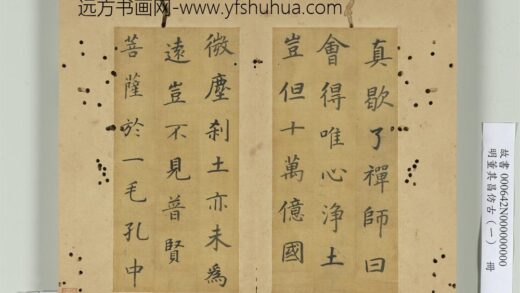 远方书画网-www.yfshuhua.com
真歇了禪師曰
會得唯心淨土
豈但十萬億國
微塵刹土亦未為
遠豈不見普賢
菩薩於一毛孔中
故書 000642N000000000
明董其昌仿古（一） 冊